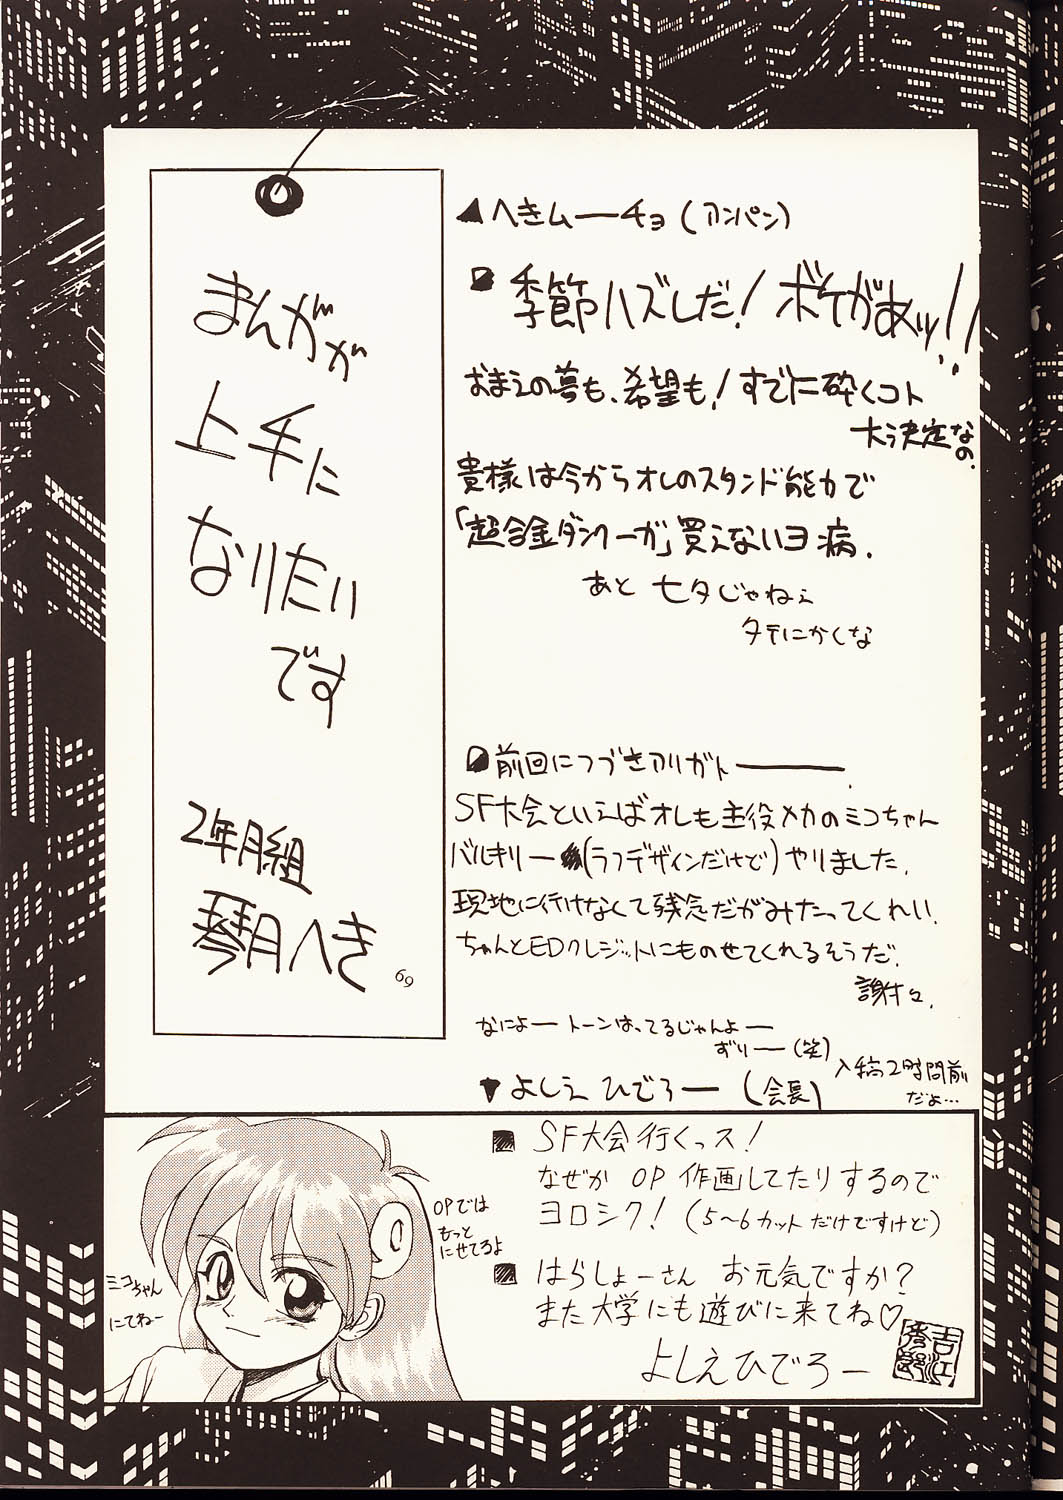 まんがが
上手に
なりたい
です
2年月組
琴月へき
69
▲へきムーチョ(アンパン)
季節ハズしだ!ボケがあッ!!
おまえの夢も、希望も!すでに砕くコト
大決定なの.
貴様は今からオレのスタンド能力で
「超合金ダンクーガ」買えないヨ病.
あと 七夕じゃねェ
タテにかくな
前回につづきアリガトー.
SF大会といえばオレも主役メカのミコちゃん
バルキリー(ラフデザインだけど)やりました.
現地に行けなくて残念だがみたってくれい.
ちゃんとEDクレジットにものせてくれるそうだ.
謝々.
なによートーンはってるじゃんよー
ずりー(笑)
入稿2時間前
だよ…
▼よしえ ひでろー(会長)
SF大会行くっス!
なぜか OP 作画してたりするので
ヨロシク!(5〜6カットだけですけど)
はらしょーさん お元気ですか?
また大学にも遊びに来てね♡
よしえひでろー
吉江
OPでは
もっと
にせてるよ
ミコちゃん
にてねー